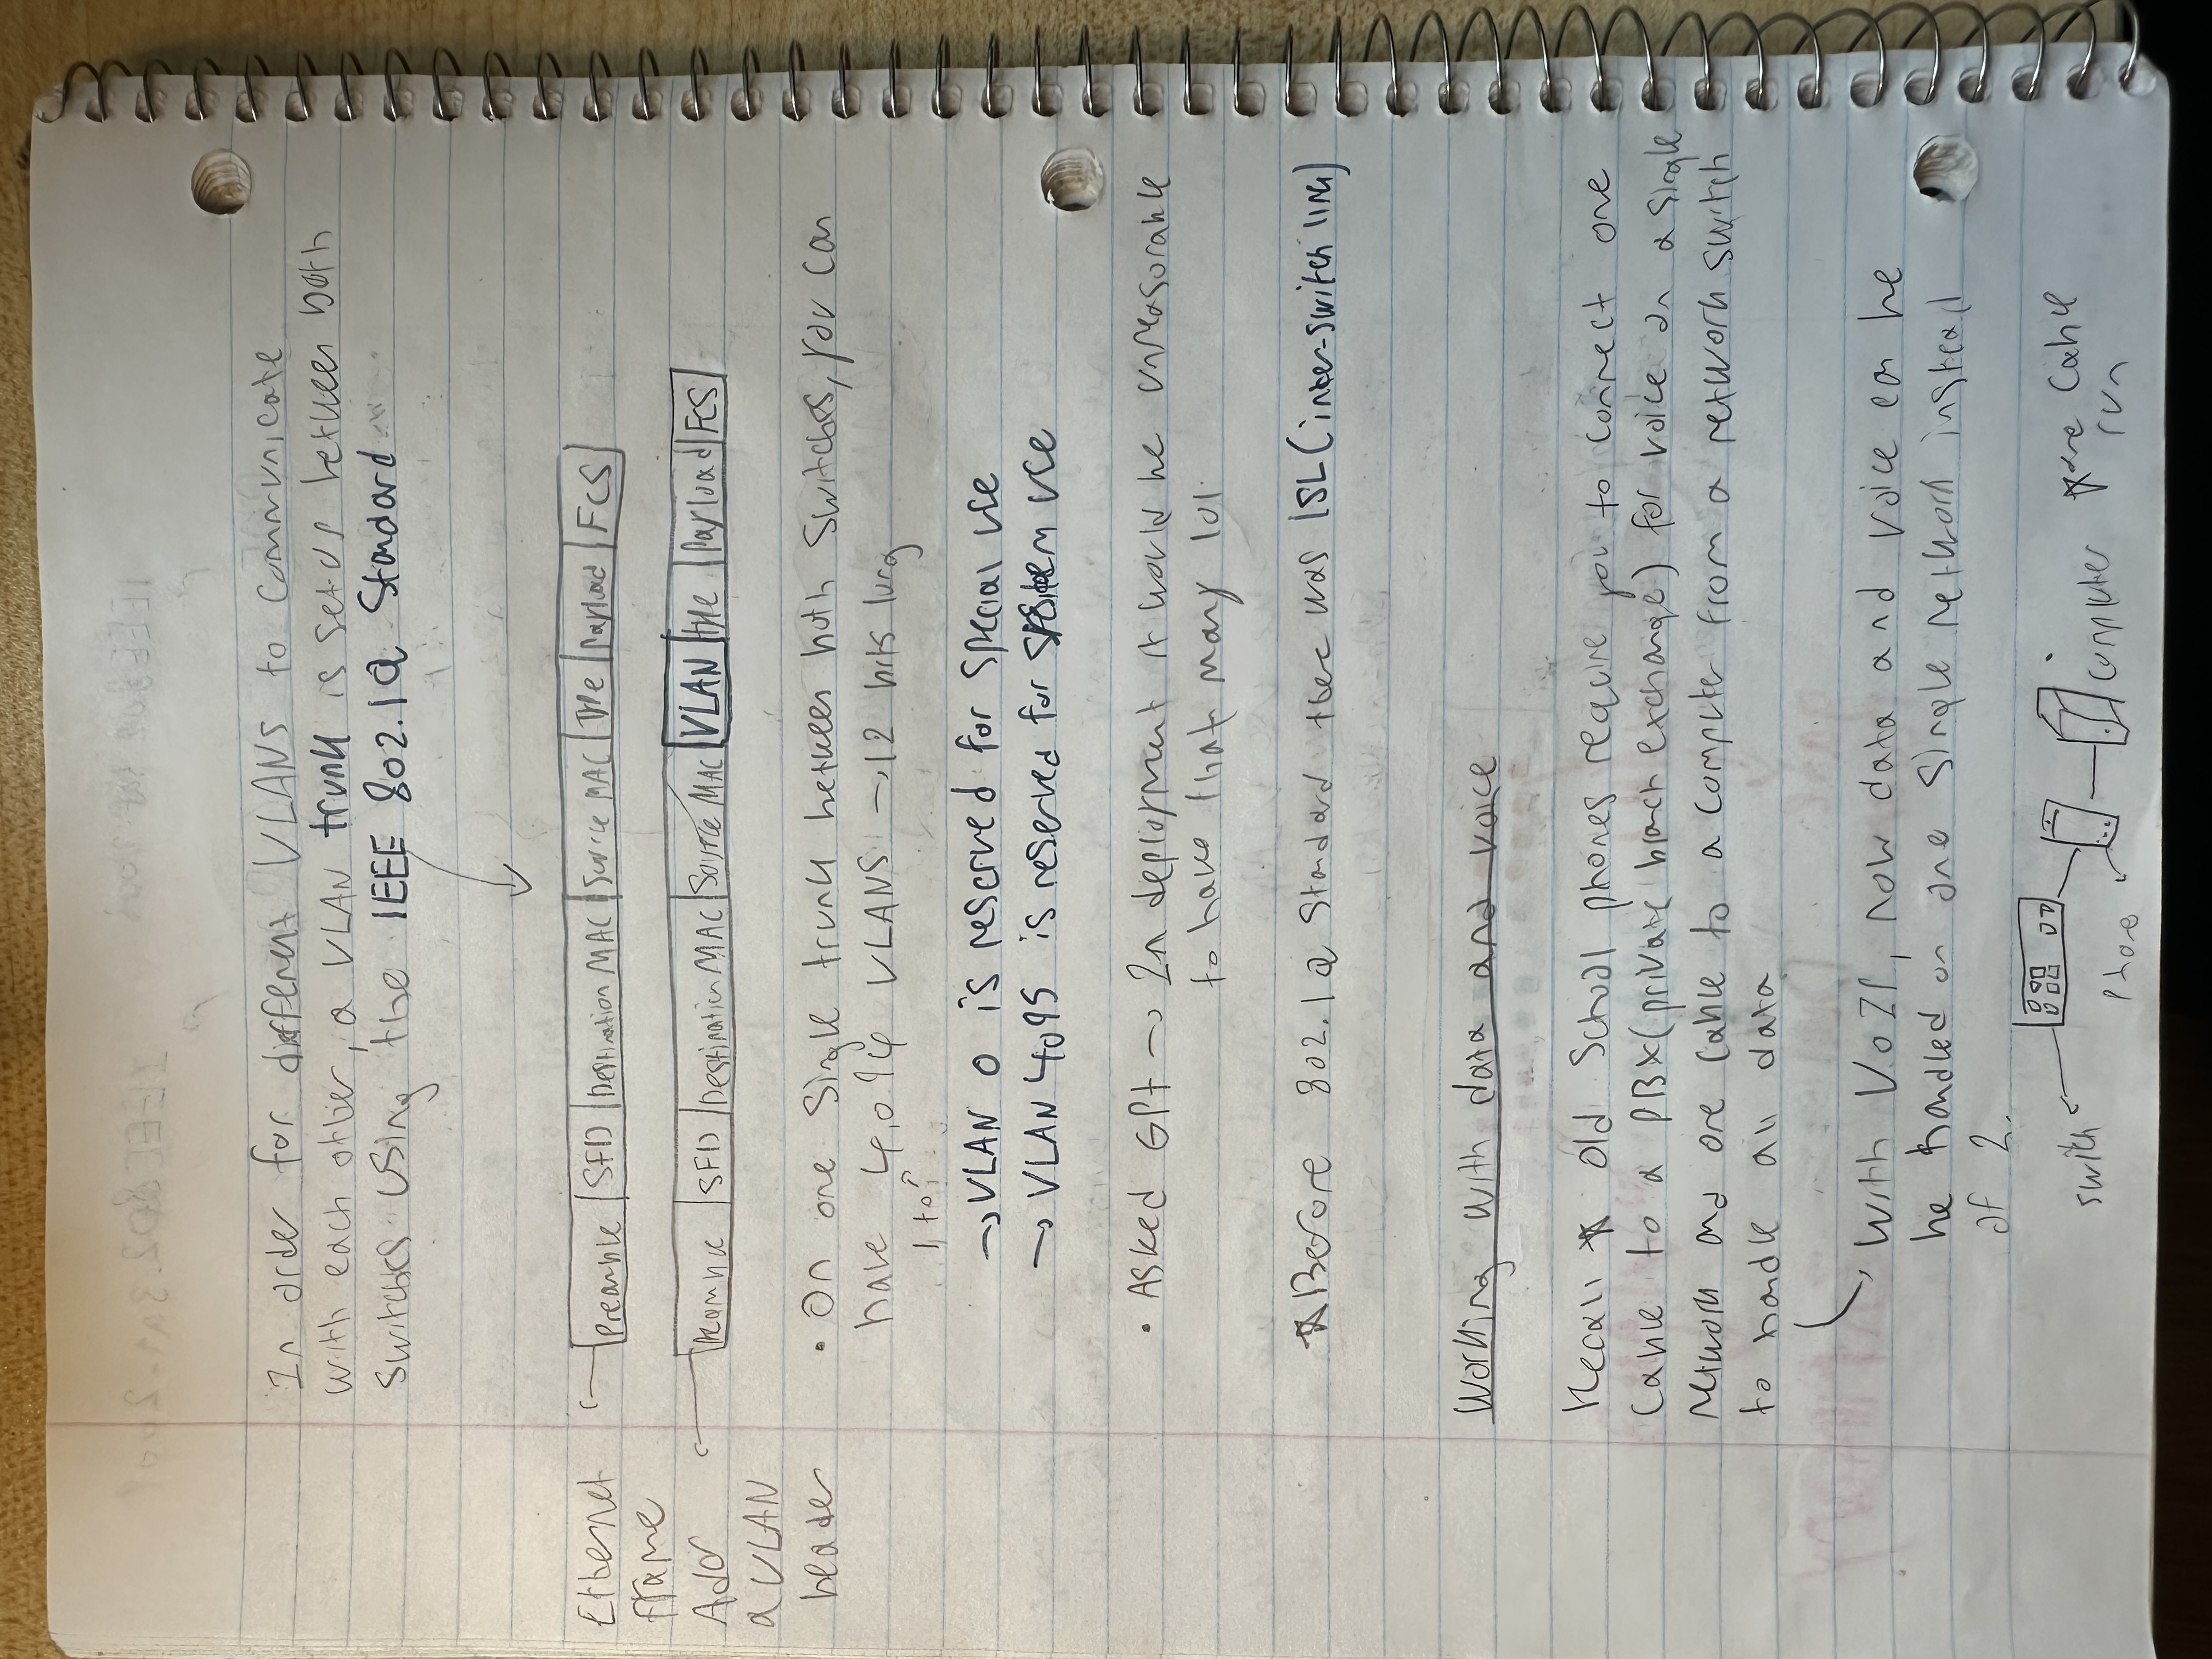 In order for different VLANS to communicate
with each other, a VLAN trunk is set-up between both
switches using the IEEE 802.1Q Standard
Ethernet
frame
Preamble SFD Destination MAC Source MAC Type Payload FCS
Add
a VLAN
header
Preamble SFD Destination MAC Source MAC VLAN type Payload FCS
• On one single trunk between both switches, you can
have 4,094 VLANS → 12 bits long
1 to
→ VLAN 0 is reserved for special use
→ VLAN 4095 is reserved for system use
• Asked GPt → In deployment it would be unreasonable
to have that many lol
☆ Before 802.1Q Standard there was ISL (inter-switch link)
Working with data and voice
Recall ☆ old school phones require you to connect one
cable to a PBX (private branch exchange) for voice on a single
network and one cable to a computer from a network switch
to handle all data
With VoIP, now data and voice can be
be handled on one single network instead
of 2.
swith
phone
computer
cable
run